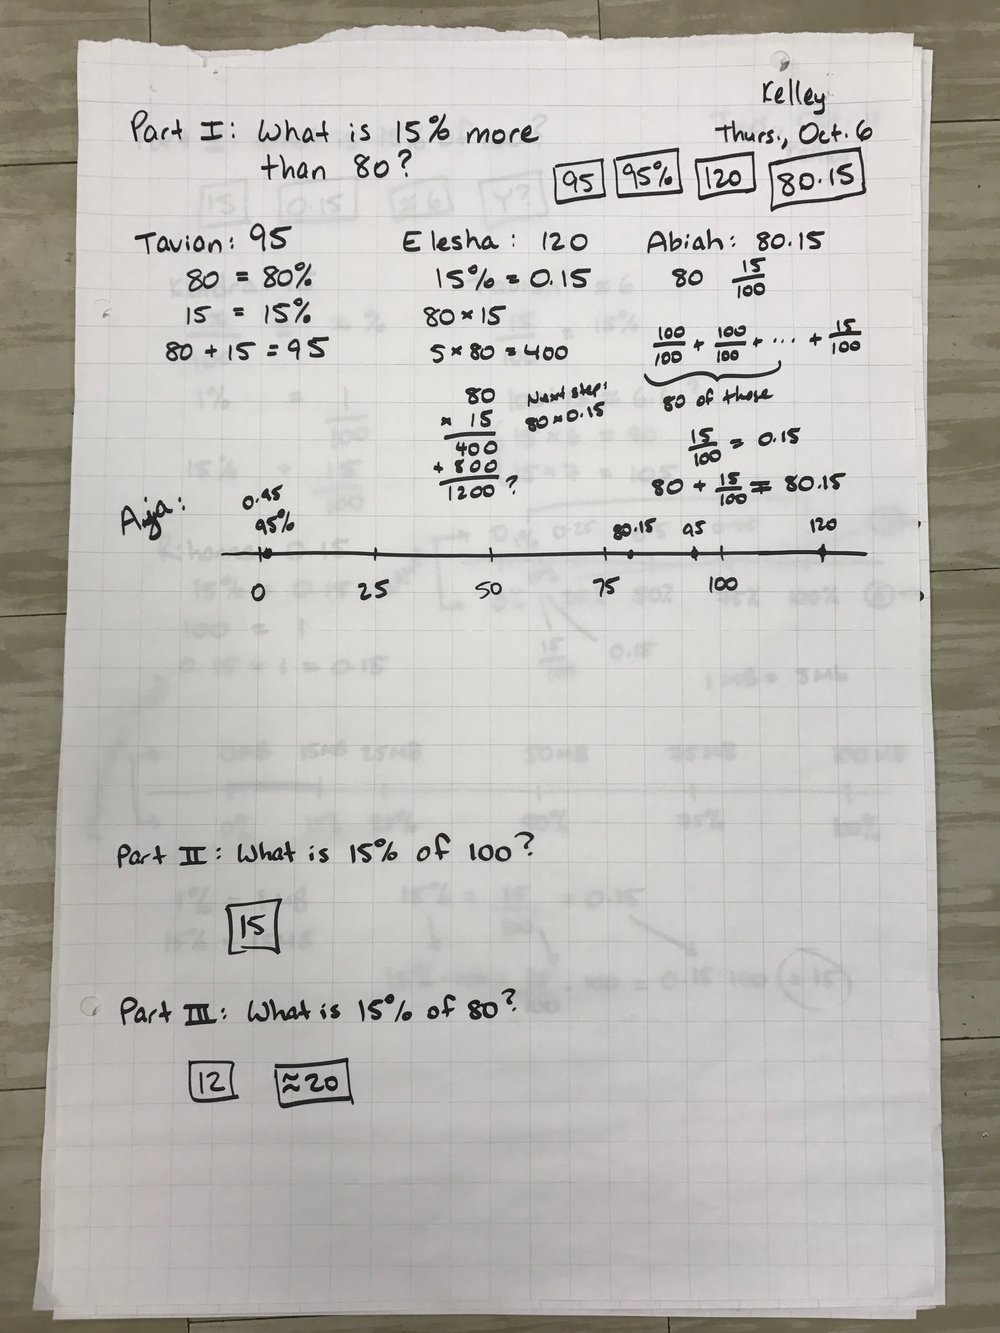 Kelley
Thurs., Oct. 6
Part I: What is 15% more
than 80?
95 95% 120 80.15
Tavion: 95
80 = 80%
15 = 15%
80 + 15 = 95
Elesha: 120
15% = 0.15
80 × 15
5 × 80 = 400
80
× 15
400
+ 800
1200?
Next step:
80 × 0.15
Abiah: 80.15
80 15/100
100/100 + 100/100 + ... + 15/100
80 of those
15/100 = 0.15
80 + 15/100 = 80.15
Aija:
0.95
95% 80.15 95 120
0 25 50 75 100
Part II: What is 15% of 100?
15
Part III: What is 15% of 80?
12 ≈20